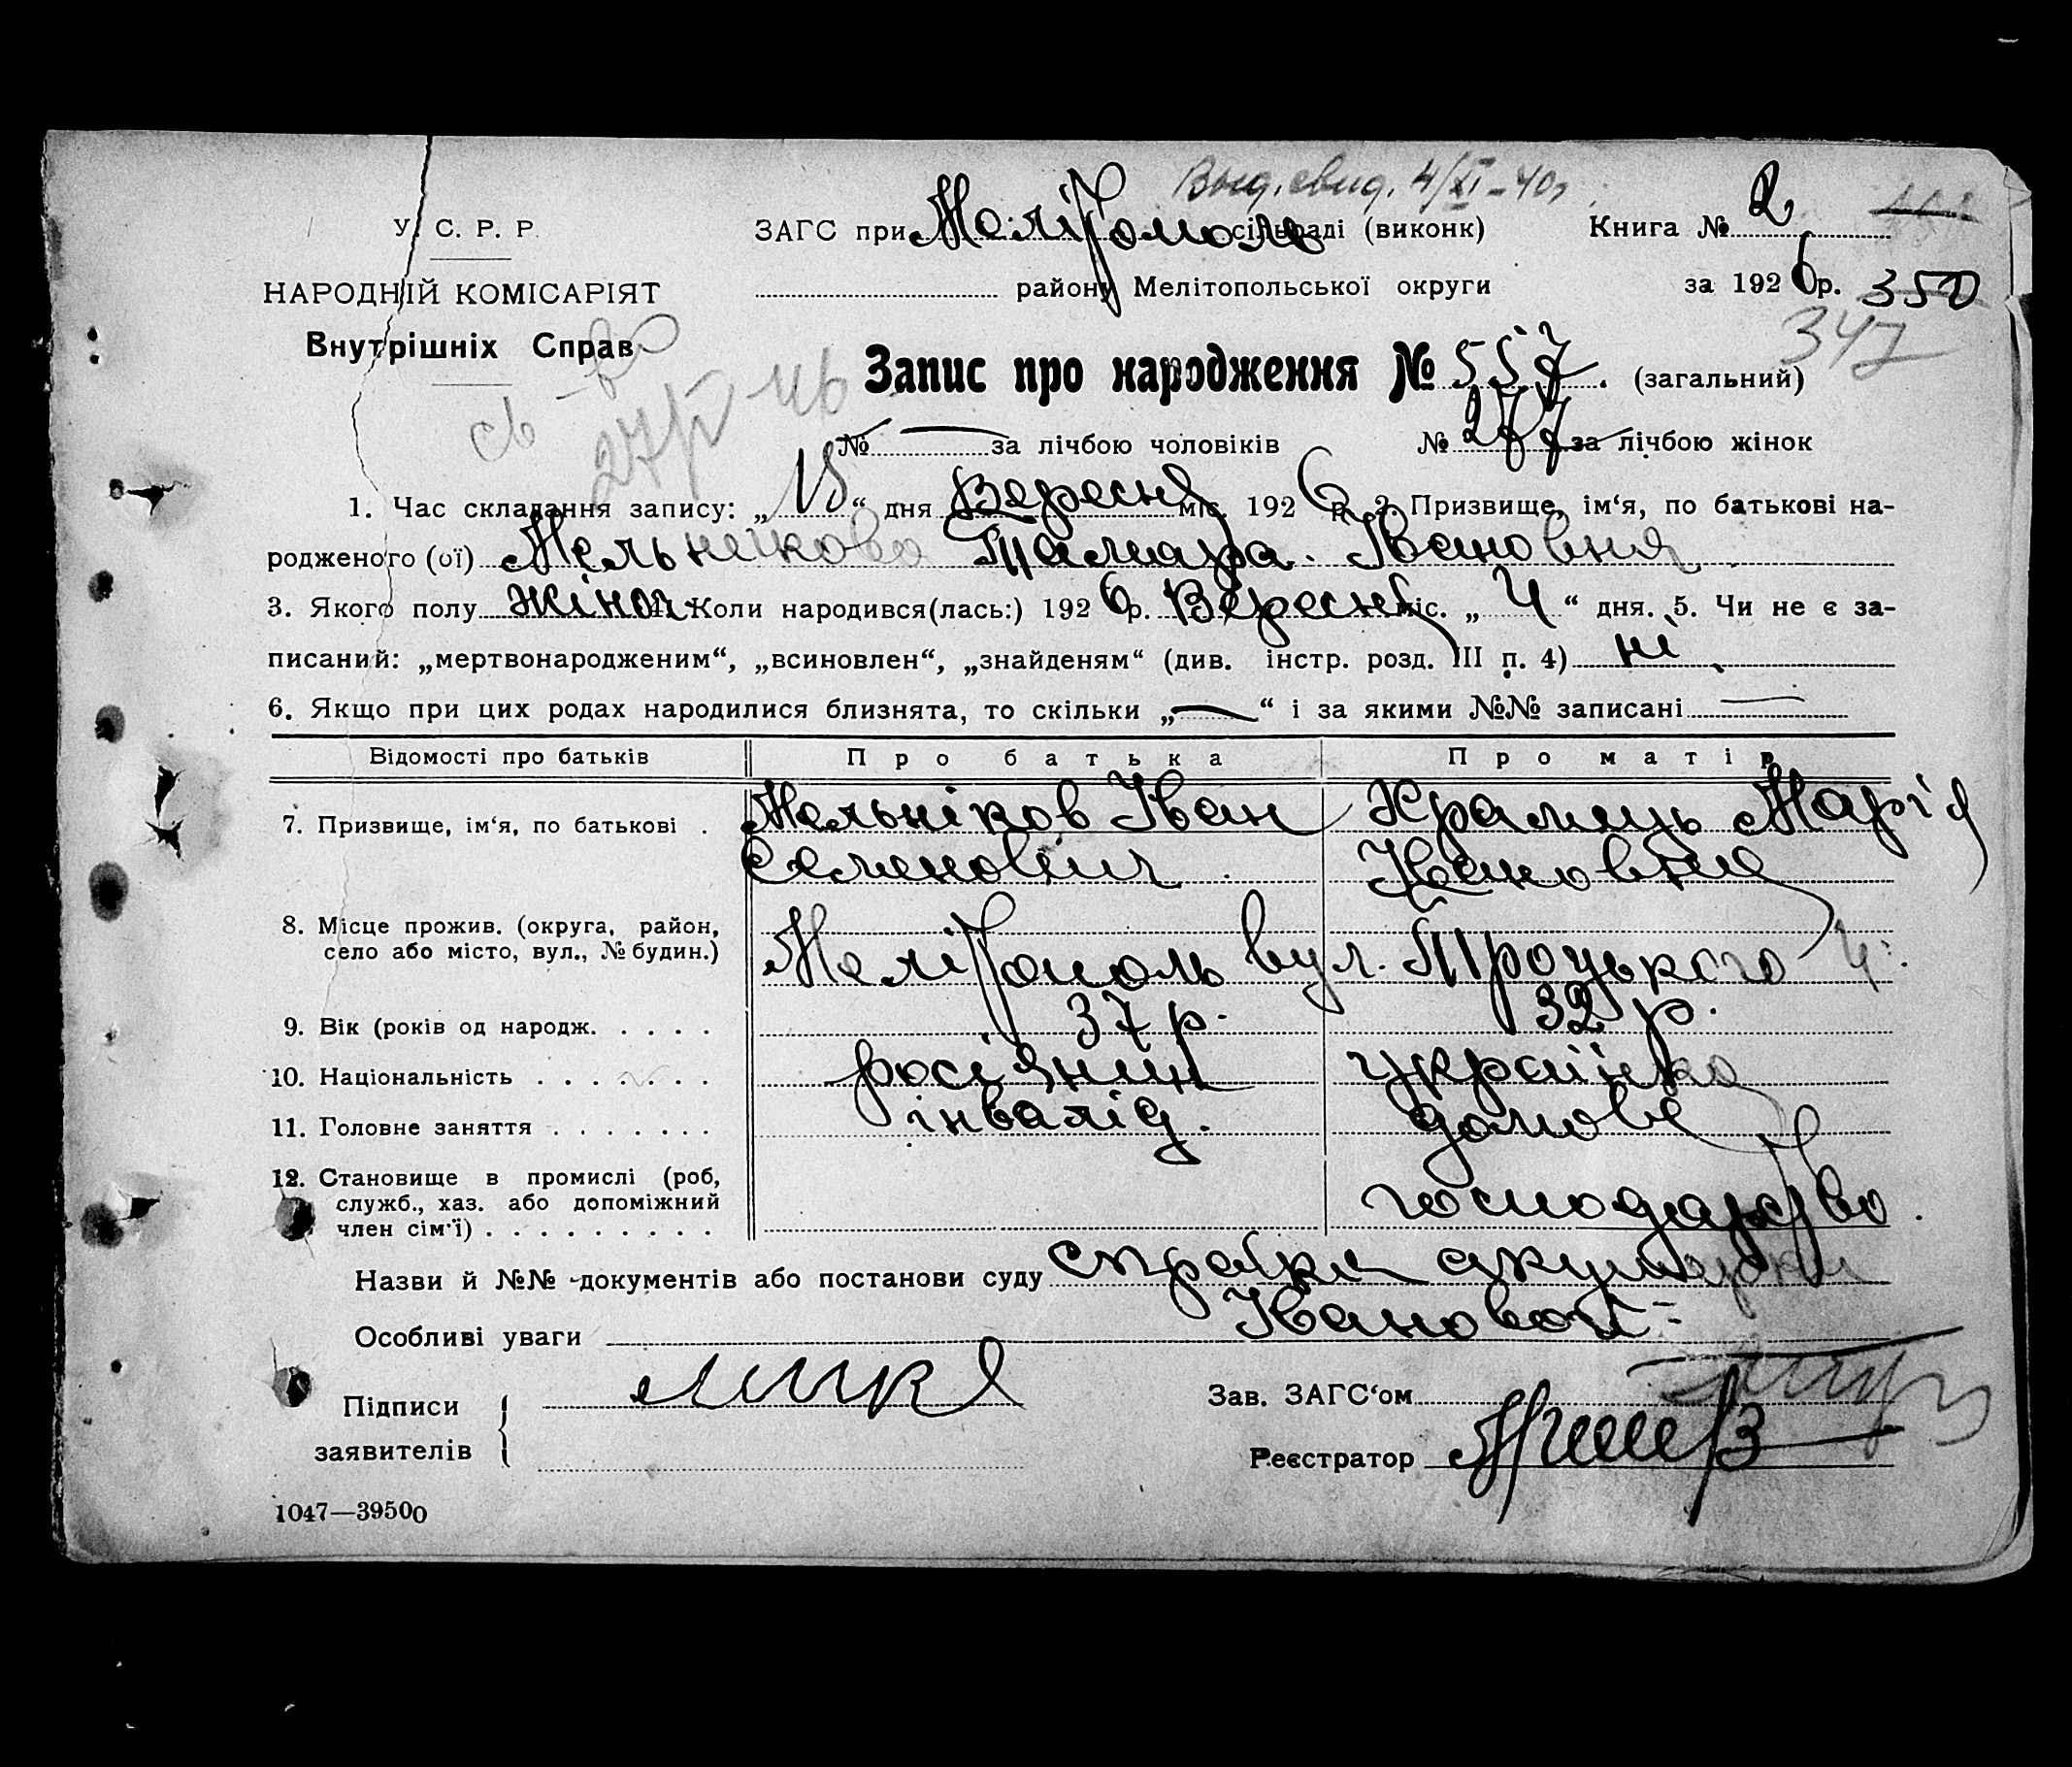 Выд. свид. 4/XI-40г
У. С. Р. Р. ЗАГС при Мелітополь сільраді (виконк) Книга № 2
НАРОДНІЙ КОМІСАРІЯТ району Мелітопольської округи за 1926 р. 350
Внутрішніх Справ 347
Запис про народження № 557. (загальний)
№ — за лічбою чоловіків № 277 за лічбою жінок
1. Час складання запису: „15“ дня Вересня міс. 1926 р. 2. Призвище, ім‘я, по батькові на-
родженого (ої) Мельнікова Тамара Івановня
3. Якого полу жіноч 4. Коли народився(лась:) 1926 р. Вересня міс. „4“ дня. 5. Чи не є за-
писаний: „мертвонародженим“, „всиновлен“, „знайденям“ (див. інстр. розд. III п. 4) ні
6. Якщо при цих родах народилися близнята, то скільки „—“ і за якими №№ записані —
Відомості про батьків Про батька Про матір
7. Призвище, ім‘я, по батькові . Мельніков Іван Крамець Марія
Семенович Івановня
8. Місце прожив. (округа, район,
село або місто, вул., № будин.) Мелітополь вул. Троцького 4
9. Вік (років од народж. . . . . 37 р. 32 р.
10. Національність . . . . . . . росіянин українка
11. Головне заняття . . . . . . . інвалід. домове
12. Становище в промислі (роб,
служб., хаз. або допоміжний господарство.
член сім‘ї) . . . . . . . . .
Назви й №№ документів або постанови суду справка акушерки
Івановой
Особливі уваги
Підписи Зав. ЗАГС‘ом
заявителів Реєстратор
1047—39500